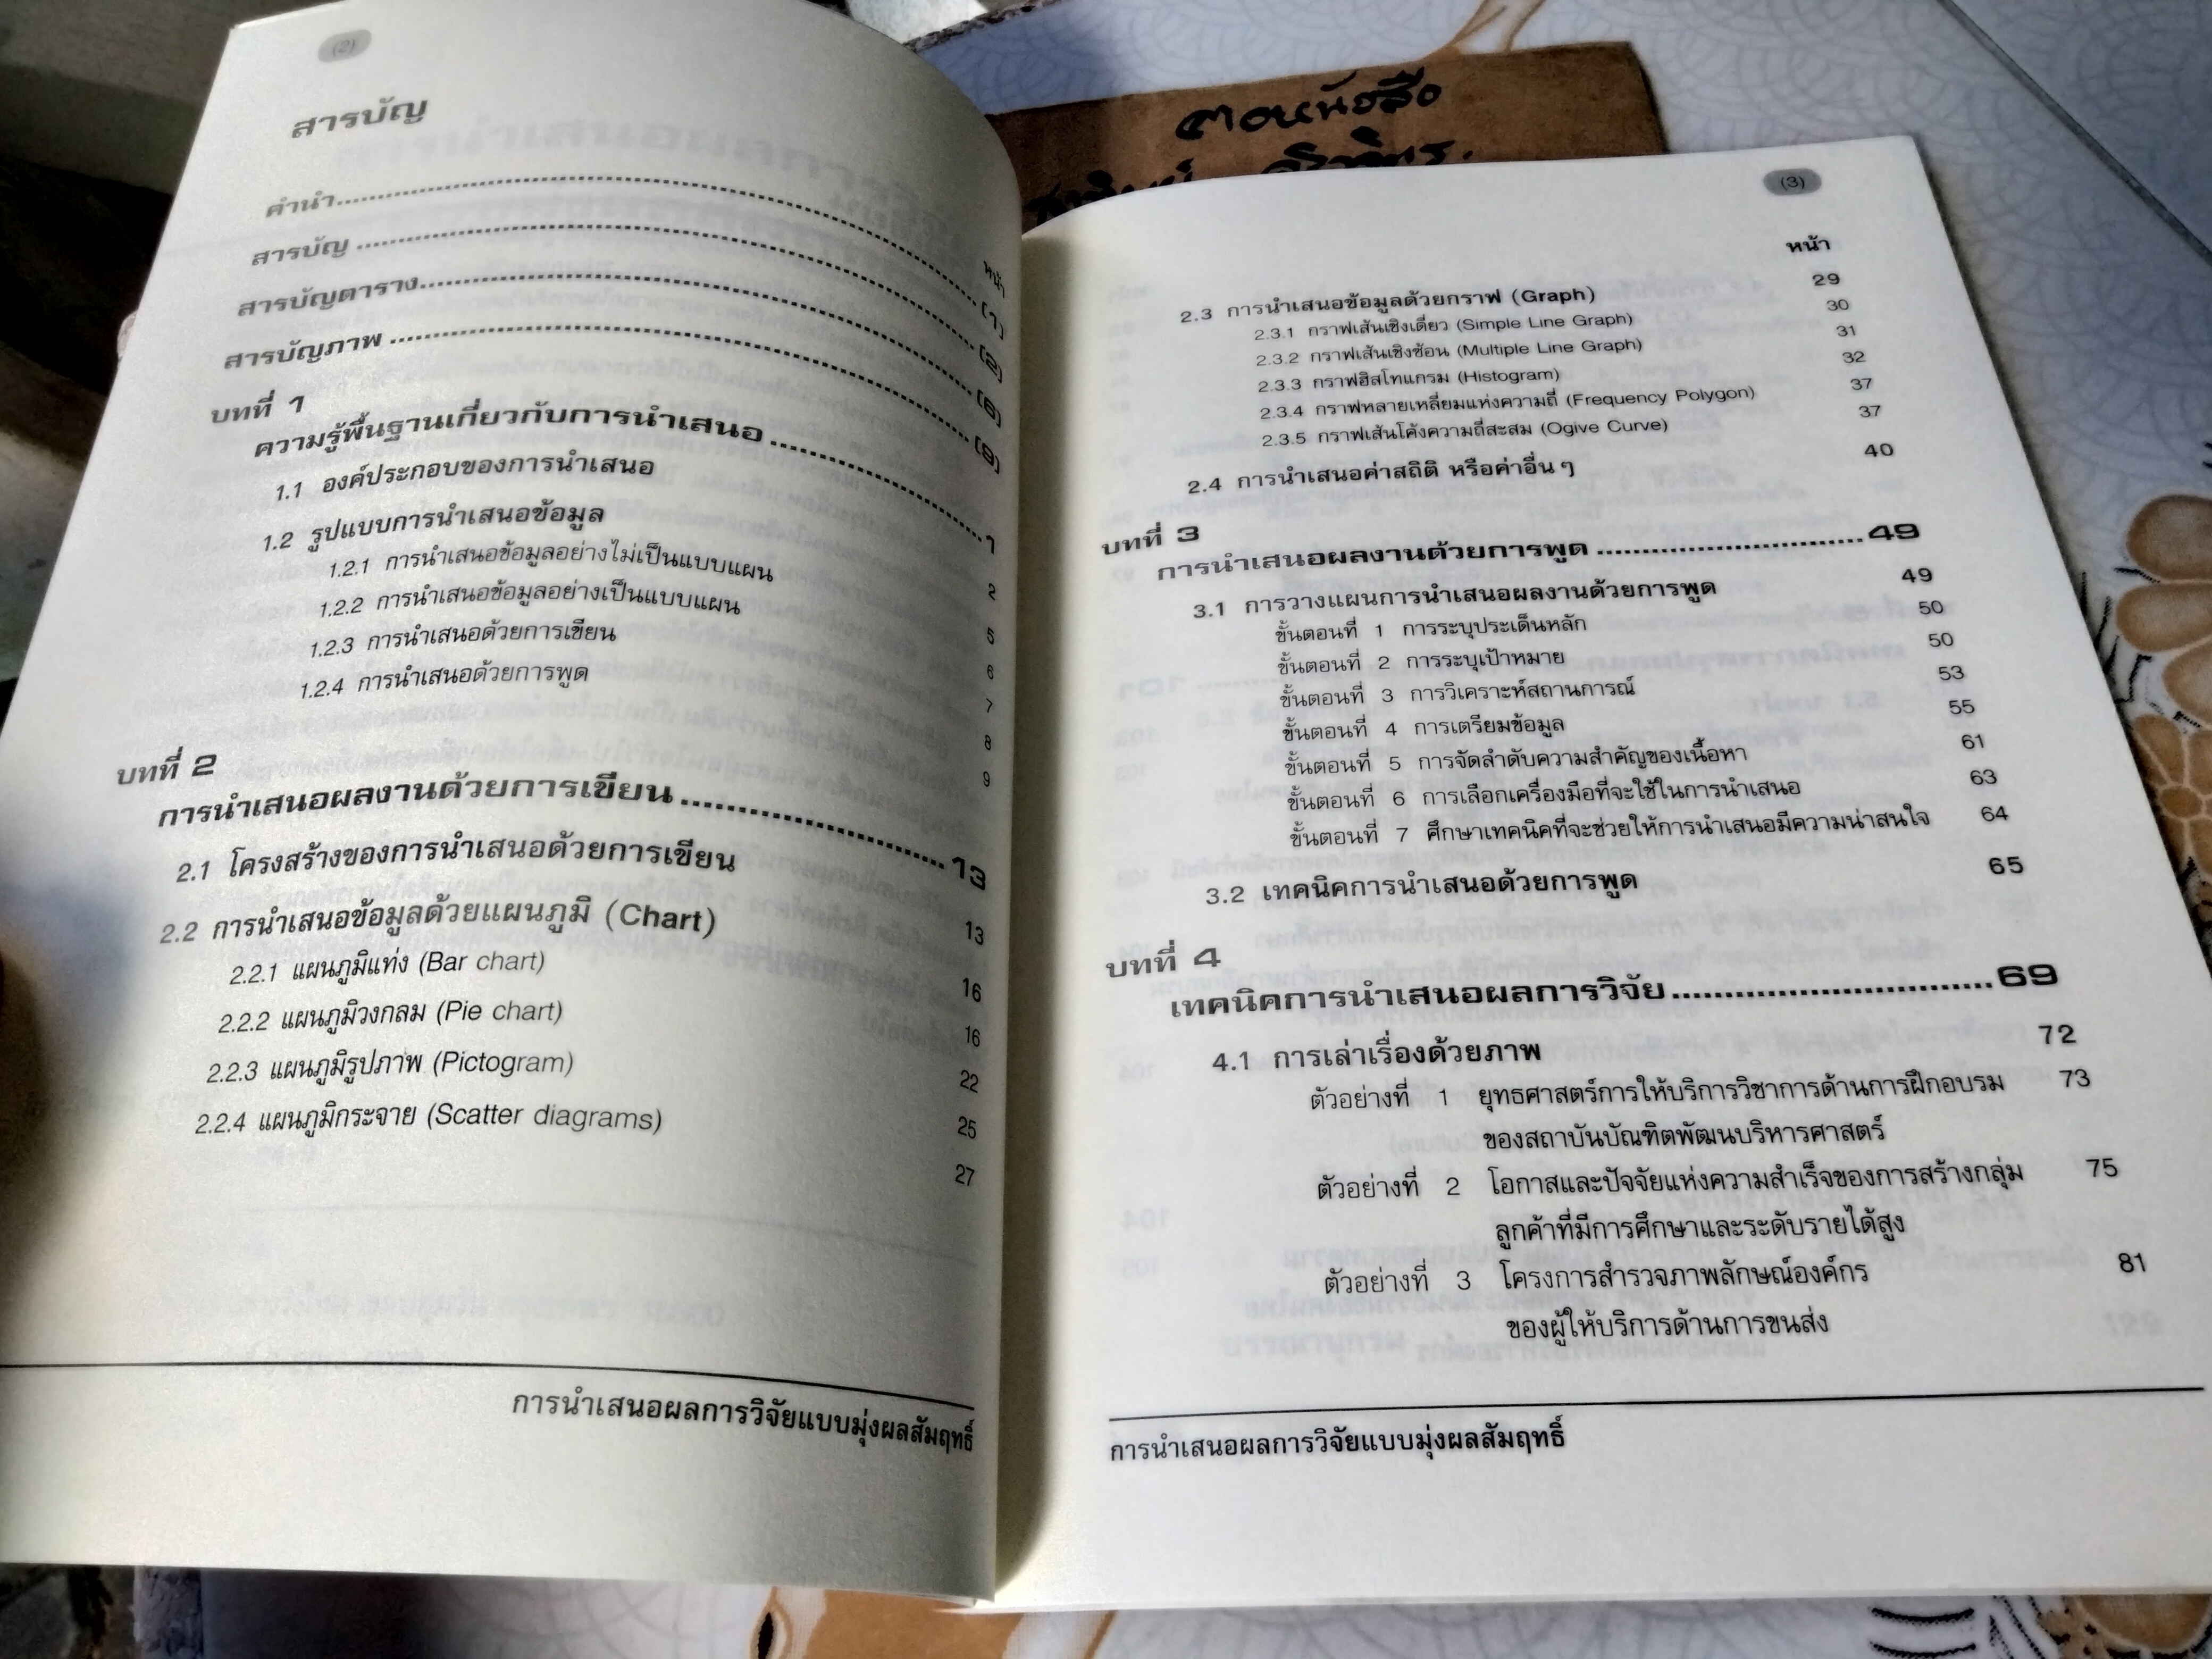 (2)
สารบัญ
หน้า
คำนำ.......... (1)
สารบัญ .......... (2)
สารบัญตาราง.......... (6)
สารบัญภาพ .......... (9)
บทที่ 1
ความรู้พื้นฐานเกี่ยวกับการนำเสนอ .......... 1
1.1 องค์ประกอบของการนำเสนอ 2
1.2 รูปแบบการนำเสนอข้อมูล 5
1.2.1 การนำเสนอข้อมูลอย่างไม่เป็นแบบแผน 6
1.2.2 การนำเสนอข้อมูลอย่างเป็นแบบแผน 7
1.2.3 การนำเสนอด้วยการเขียน 8
1.2.4 การนำเสนอด้วยการพูด 9
บทที่ 2
การนำเสนอผลงานด้วยการเขียน .......... 13
2.1 โครงสร้างของการนำเสนอด้วยการเขียน 13
2.2 การนำเสนอข้อมูลด้วยแผนภูมิ (Chart) 16
2.2.1 แผนภูมิแท่ง (Bar chart) 16
2.2.2 แผนภูมิวงกลม (Pie chart) 22
2.2.3 แผนภูมิรูปภาพ (Pictogram) 25
2.2.4 แผนภูมิกระจาย (Scatter diagrams) 27
การนำเสนอผลการวิจัยแบบมุ่งผลสัมฤทธิ์
(3)
หน้า
2.3 การนำเสนอข้อมูลด้วยกราฟ (Graph) 29
2.3.1 กราฟเส้นเชิงเดี่ยว (Simple Line Graph) 30
2.3.2 กราฟเส้นเชิงซ้อน (Multiple Line Graph) 31
2.3.3 กราฟฮิสโทแกรม (Histogram) 32
2.3.4 กราฟหลายเหลี่ยมแห่งความถี่ (Frequency Polygon) 37
2.3.5 กราฟเส้นโค้งความถี่สะสม (Ogive Curve) 37
2.4 การนำเสนอค่าสถิติ หรือค่าอื่น ๆ 40
บทที่ 3
การนำเสนอผลงานด้วยการพูด .......... 49
3.1 การวางแผนการนำเสนอผลงานด้วยการพูด 49
ขั้นตอนที่ 1 การระบุประเด็นหลัก 50
ขั้นตอนที่ 2 การระบุเป้าหมาย 50
ขั้นตอนที่ 3 การวิเคราะห์สถานการณ์ 53
ขั้นตอนที่ 4 การเตรียมข้อมูล 55
ขั้นตอนที่ 5 การจัดลำดับความสำคัญของเนื้อหา 61
ขั้นตอนที่ 6 การเลือกเครื่องมือที่จะใช้ในการนำเสนอ 63
ขั้นตอนที่ 7 ศึกษาเทคนิคที่จะช่วยให้การนำเสนอมีความน่าสนใจ 64
3.2 เทคนิคการนำเสนอด้วยการพูด 65
บทที่ 4
เทคนิคการนำเสนอผลการวิจัย .......... 69
4.1 การเล่าเรื่องด้วยภาพ 72
ตัวอย่างที่ 1 ยุทธศาสตร์การให้บริการวิชาการด้านการฝึกอบรม 73
ของสถาบันบัณฑิตพัฒนบริหารศาสตร์
ตัวอย่างที่ 2 โอกาสและปัจจัยแห่งความสำเร็จของการสร้างกลุ่ม 75
ลูกค้าที่มีการศึกษาและระดับรายได้สูง
ตัวอย่างที่ 3 โครงการสำรวจภาพลักษณ์องค์กร 81
ของผู้ให้บริการด้านการขนส่ง
การนำเสนอผลการวิจัยแบบมุ่งผลสัมฤทธิ์